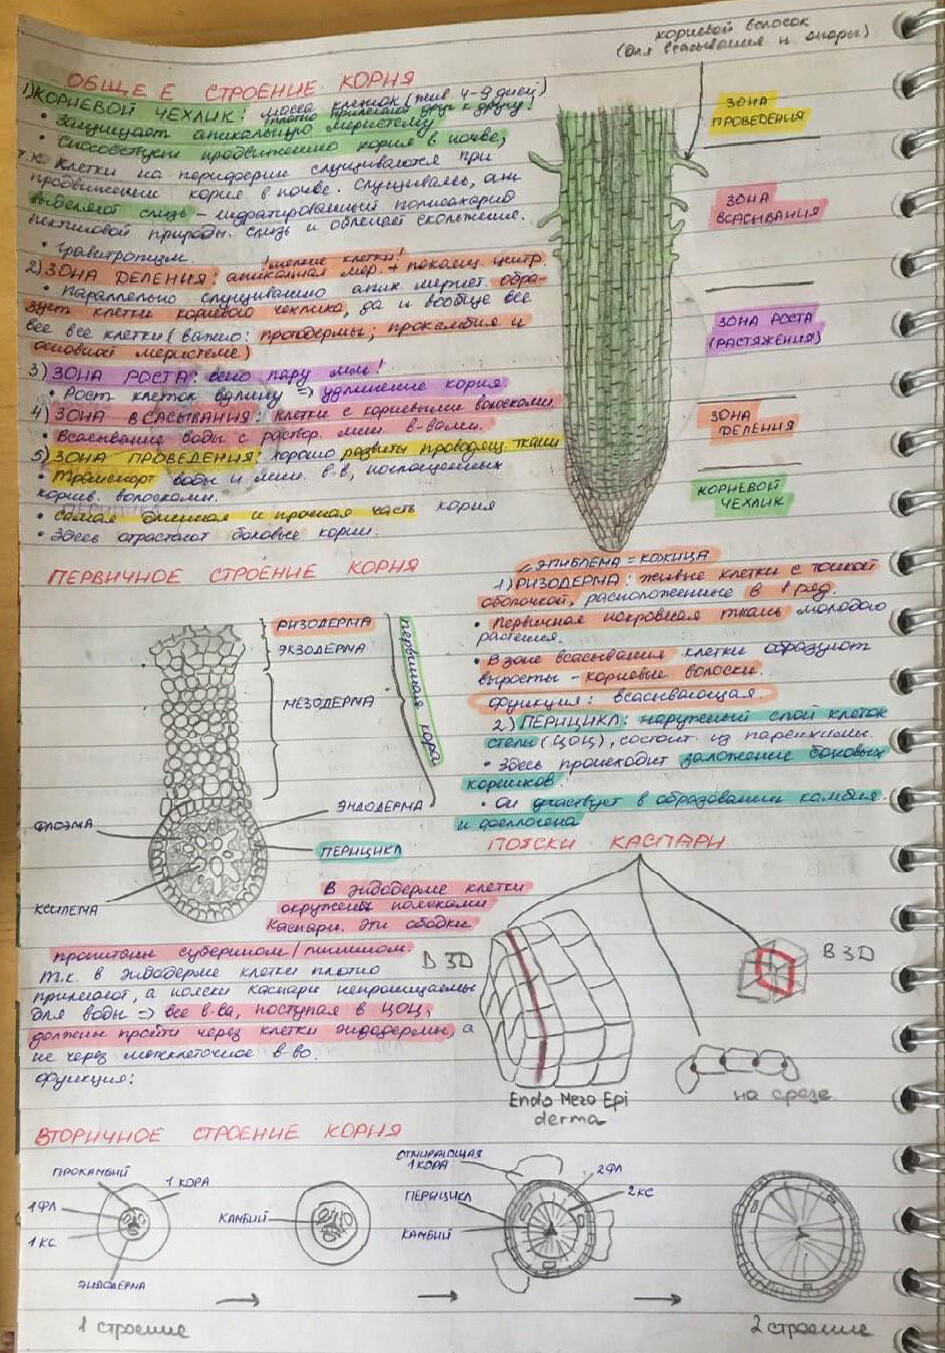 корневой волосок
(для всасывания и опоры)
ОБЩЕЕ СТРОЕНИЕ КОРНЯ
1) КОРНЕВОЙ ЧЕХЛИК: масса клеток (жив. 4-9 дней)
плотно прилегают друг к другу!
• Защищает апикальную меристему
• Способствует продвижению корня в почве,
т.к. клетки на периферии слущиваются при
продвижении корня в почве. Слущиваясь, они
выделяют слизь - гидратированный полисахарид
пектиновой природы. слизь и облегчает скольжение.
• гравитропизм.
! мелкие клетки!
2) ЗОНА ДЕЛЕНИЯ: апикальная мер. + покоящ. центр.
• Параллельно слущиванию апик. мерист. обра-
зует клетки корневого чехлика, да и вообще все
все все клетки (важно: протодермы; прокамбия и
основной меристеме)
3) ЗОНА РОСТА: всего пару мм!
• Рост клеток вдлину => удлинение корня.
4) ЗОНА ВСАСЫВАНИЯ: клетки с корневыми волосками
• Всасывание воды с раствор. мин. в-вами.
5) ЗОНА ПРОВЕДЕНИЯ: хорошо развиты проводящ. ткани
• Транспорт воды и мин. в-в, поглощенных
корнев. волосками.
• Самая длинная и прочная часть корня
• Здесь отрастают боковые корни.
ЗОНА
ПРОВЕДЕНИЯ
ЗОНА
ВСАСЫВАНИЯ
ЗОНА РОСТА
(РАСТЯЖЕНИЯ)
ЗОНА
ДЕЛЕНИЯ
КОРНЕВОЙ
ЧЕХЛИК
ПЕРВИЧНОЕ СТРОЕНИЕ КОРНЯ
РИЗОДЕРМА
ЭКЗОДЕРМА
МЕЗОДЕРМА
первичная кора
ЭНДОДЕРМА
ФЛОЭМА
ПЕРИЦИКЛ
КСИЛЕМА
ЭПИБЛЕМА = КОЖИЦА
1) РИЗОДЕРМА: живые клетки с тонкой
оболочкой, расположенные в 1 ряд.
• Первичная покровная ткань молодого
растения.
• В зоне всасывания клетки образуют
выросты - корневые волоски.
Функция: всасывающая.
2) ПЕРИЦИКЛ: наружный слой клеток
стелы (ЦОЦ), состоит из паренхимы.
• Здесь происходит заложение боковых
корешков.
• Он участвует в образовании камбия
и феллогена
В эндодерме клетки
окружены поясками
Каспари. Эти ободки
пропитаны суберином/лигнином.
Т.к. в эндодерме клетки плотно
прилегают, а пояски Каспари непроницаемы
для воды => все в-ва, поступая в ЦОЦ,
должны пройти через клетки эндодермы, а
не через межклеточное в-во.
Функция:
ПОЯСКИ КАСПАРИ
В 3D
В 3D
Endo Mezo Epi
derma
на срезе
ВТОРИЧНОЕ СТРОЕНИЕ КОРНЯ
ПРОКАМБИЙ
1 КОРА
1 ФЛ
1 КС
ЭНДОДЕРМА
1 строение
КАМБИЙ
ОТМИРАЮЩАЯ
1 КОРА
2 ФЛ
2 КС
ПЕРИЦИКЛ
КАМБИЙ
2 строение